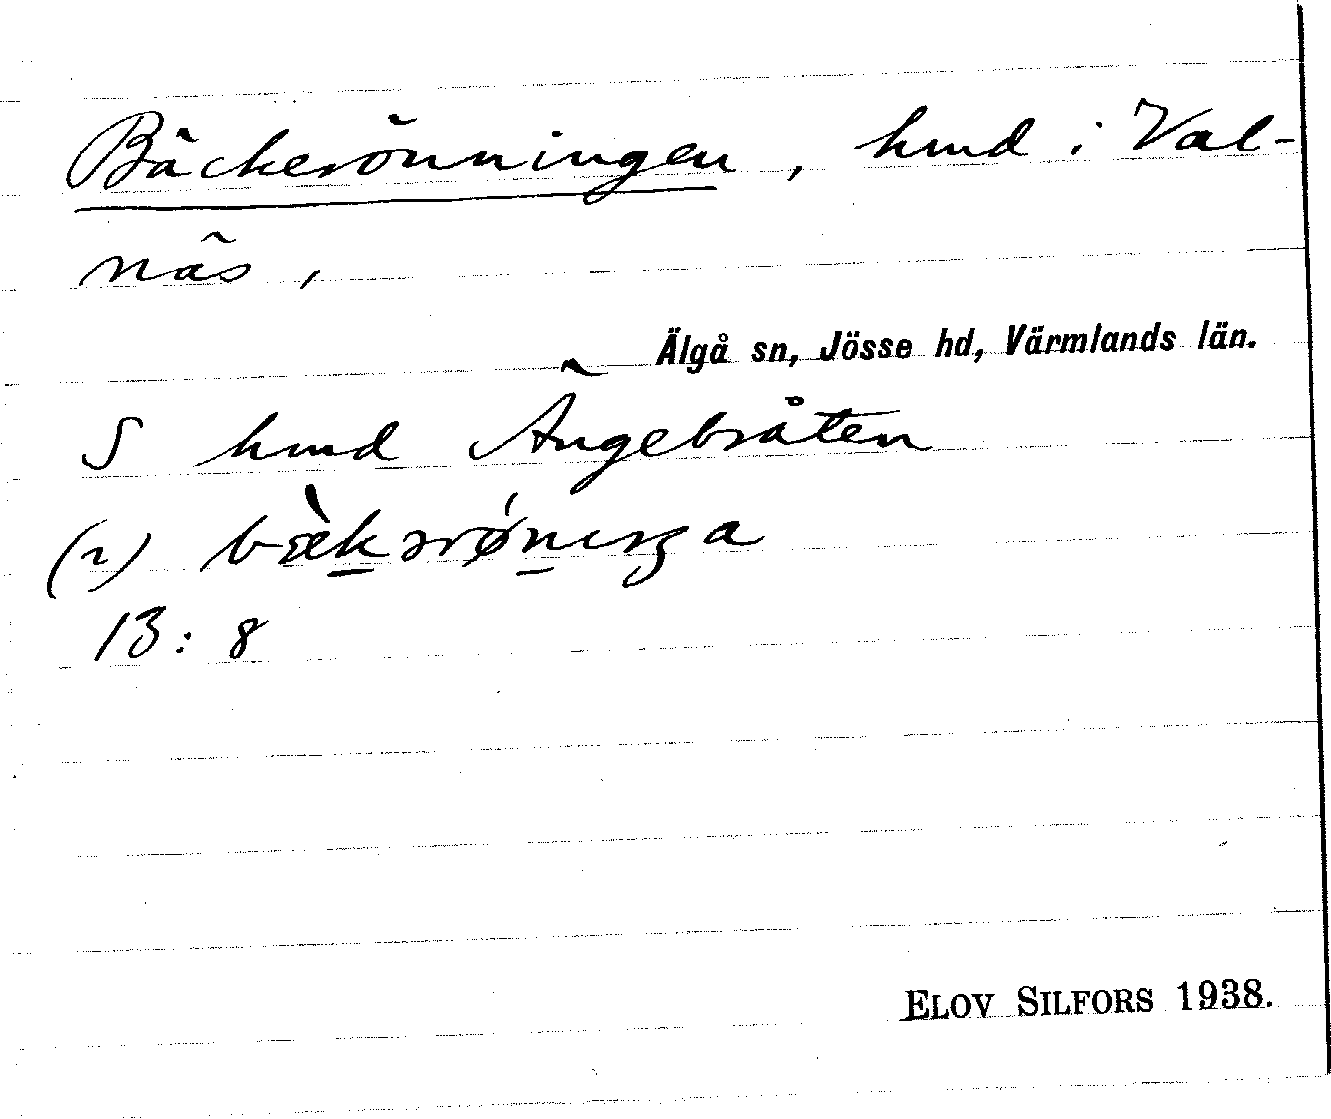 Bäckerönningen, hmd i Val-
näs,
Älgå sn, Jösse hd, Värmlands län.
S hmd Ängebråten
(2) bæ̀kərǿnıŋa
13:8
ELOV SILFORS 1938.